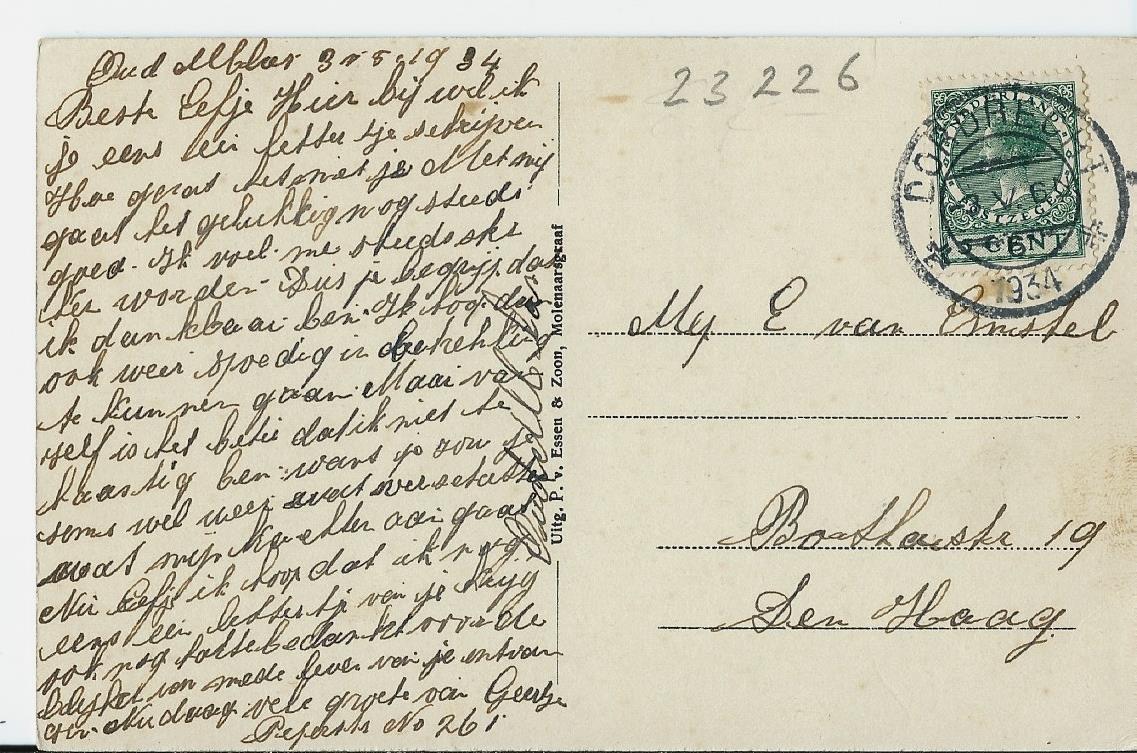 Oud Alblas 3 5 1934
Beste Eefje Hier bij wil ik
je eens een letter tje schrijven
Hoe gaat het met je Met mij
gaat het gelukkig nog steeds
goed. Ik voel me steeds
ter worden. Dus je begrijp dat
ik dankbaar ben. Ik hoop dan
ook weer spoedig in
te kunnen gaan. Maar van
zelf is het beter dat ik niet te
haastig ben. want je zou je
soms wel weer wat
wat mij aan gaat
Nu Eefje ik hoop dat ik nog
eens een lettertje van je krijg
ook nog hartte bedankt voor de
blijken van mede leven van je ontvan
gen. Nu daag vele groete van Geertje
No 261
Oud Alblas
Uitg. P. v. Essen & Zoon, Molenaarsgraaf
23 226
NEDERLAND
POSTZEGEL
5 CENT
DORDRECHT
3 V 6
1934
Mej E van Amstel
19
Den Haag